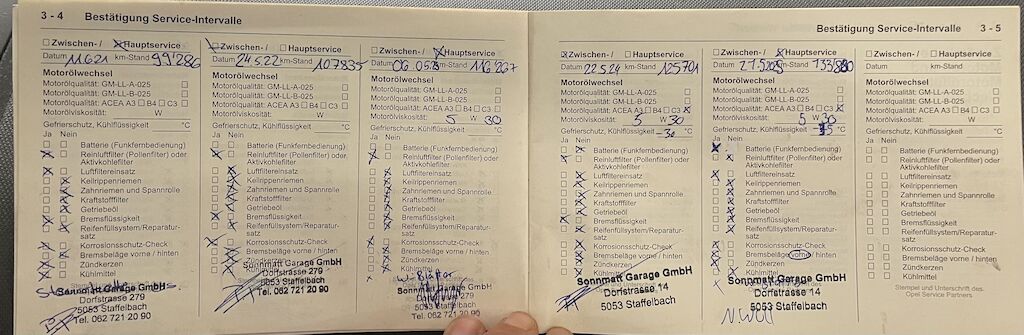 3 - 4 Bestätigung Service-Intervalle
☐ Zwischen- / ☒ Hauptservice
Datum 11.6.21 km-Stand 99'286
Motorölwechsel
Motorölqualität: GM-LL-A-025 ☐
Motorölqualität: GM-LL-B-025 ☐
Motorölqualität: ACEA A3 ☐ B4 ☐ C3 ☐
Motorölviskosität: W
Gefrierschutz, Kühlflüssigkeit °C
Ja Nein
Batterie (Funkfernbedienung)
Reinluftfilter (Pollenfilter) oder
Aktivkohlefilter
Luftfiltereinsatz
Keilrippenriemen
Zahnriemen und Spannrolle
Kraftstofffilter
Getriebeöl
Bremsflüssigkeit
Reifenfüllsystem/Reparatur-
satz
Korrosionsschutz-Check
Bremsbeläge vorne / hinten
Zündkerzen
Kühlmittel
Sonnmatt Garage GmbH
Dorfstrasse 279
5053 Staffelbach
Tel. 062 721 20 90
☒ Zwischen- / ☐ Hauptservice
Datum 24.5.22 km-Stand 107835
Motorölwechsel
Motorölqualität: GM-LL-A-025 ☐
Motorölqualität: GM-LL-B-025 ☐
Motorölqualität: ACEA A3 ☐ B4 ☐ C3 ☐
Motorölviskosität: W
Gefrierschutz, Kühlflüssigkeit °C
Ja Nein
Batterie (Funkfernbedienung)
Reinluftfilter (Pollenfilter) oder
Aktivkohlefilter
Luftfiltereinsatz
Keilrippenriemen
Zahnriemen und Spannrolle
Kraftstofffilter
Getriebeöl
Bremsflüssigkeit
Reifenfüllsystem/Reparatur-
satz
Korrosionsschutz-Check
Bremsbeläge vorne / hinten
Zündkerzen
Kühlmittel
Sonnmatt Garage GmbH
Dorfstrasse 279
5053 Staffelbach
Tel. 062 721 20 90
☐ Zwischen- / ☒ Hauptservice
Datum km-Stand
Motorölwechsel
Motorölqualität: GM-LL-A-025 ☐
Motorölqualität: GM-LL-B-025 ☐
Motorölqualität: ACEA A3 ☐ B4 ☐ C3 ☐
Motorölviskosität: 5 W 30
Gefrierschutz, Kühlflüssigkeit °C
Ja Nein
Batterie (Funkfernbedienung)
Reinluftfilter (Pollenfilter) oder
Aktivkohlefilter
Luftfiltereinsatz
Keilrippenriemen
Zahnriemen und Spannrolle
Kraftstofffilter
Getriebeöl
Bremsflüssigkeit
Reifenfüllsystem/Reparatur-
satz
Korrosionsschutz-Check
Bremsbeläge vorne / hinten
Zündkerzen
Kühlmittel
Sonnmatt Garage GmbH
Dorfstrasse 279
5053 Staffelbach
Tel. 062 721 20 90
Bestätigung Service-Intervalle 3 - 5
☒ Zwischen- / ☐ Hauptservice
Datum 22.5.24 km-Stand 125701
Motorölwechsel
Motorölqualität: GM-LL-A-025 ☐
Motorölqualität: GM-LL-B-025 ☐
Motorölqualität: ACEA A3 ☐ B4 ☐ C3 ☒
Motorölviskosität: 5 W 30
Gefrierschutz, Kühlflüssigkeit -30 °C
Ja Nein
Batterie (Funkfernbedienung)
Reinluftfilter (Pollenfilter) oder
Aktivkohlefilter
Luftfiltereinsatz
Keilrippenriemen
Zahnriemen und Spannrolle
Kraftstofffilter
Getriebeöl
Bremsflüssigkeit
Reifenfüllsystem/Reparatur-
satz
Korrosionsschutz-Check
Bremsbeläge vorne / hinten
Zündkerzen
Kühlmittel
Sonnmatt Garage GmbH
Dorfstrasse 14
5053 Staffelbach
☐ Zwischen- / ☒ Hauptservice
Datum km-Stand
Motorölwechsel
Motorölqualität: GM-LL-A-025 ☐
Motorölqualität: GM-LL-B-025 ☐
Motorölqualität: ACEA A3 ☐ B4 ☐ C3 ☒
Motorölviskosität: 5 W 30
Gefrierschutz, Kühlflüssigkeit °C
Ja Nein
Batterie (Funkfernbedienung)
Reinluftfilter (Pollenfilter) oder
Aktivkohlefilter
Luftfiltereinsatz
Keilrippenriemen
Zahnriemen und Spannrolle
Kraftstofffilter
Getriebeöl
Bremsflüssigkeit
Reifenfüllsystem/Reparatur-
satz
Korrosionsschutz-Check
Bremsbeläge vorne / hinten
Zündkerzen
Kühlmittel
Sonnmatt Garage GmbH
Dorfstrasse 14
5053 Staffelbach
☐ Zwischen- / ☐ Hauptservice
Datum km-Stand
Motorölwechsel
Motorölqualität: GM-LL-A-025 ☐
Motorölqualität: GM-LL-B-025 ☐
Motorölqualität: ACEA A3 ☐ B4 ☐ C3 ☐
Motorölviskosität: W
Gefrierschutz, Kühlflüssigkeit °C
Ja Nein
Batterie (Funkfernbedienung)
Reinluftfilter (Pollenfilter) oder
Aktivkohlefilter
Luftfiltereinsatz
Keilrippenriemen
Zahnriemen und Spannrolle
Kraftstofffilter
Getriebeöl
Bremsflüssigkeit
Reifenfüllsystem/Reparatur-
satz
Korrosionsschutz-Check
Bremsbeläge vorne / hinten
Zündkerzen
Kühlmittel
Stempel und Unterschrift des
Opel Service Partners